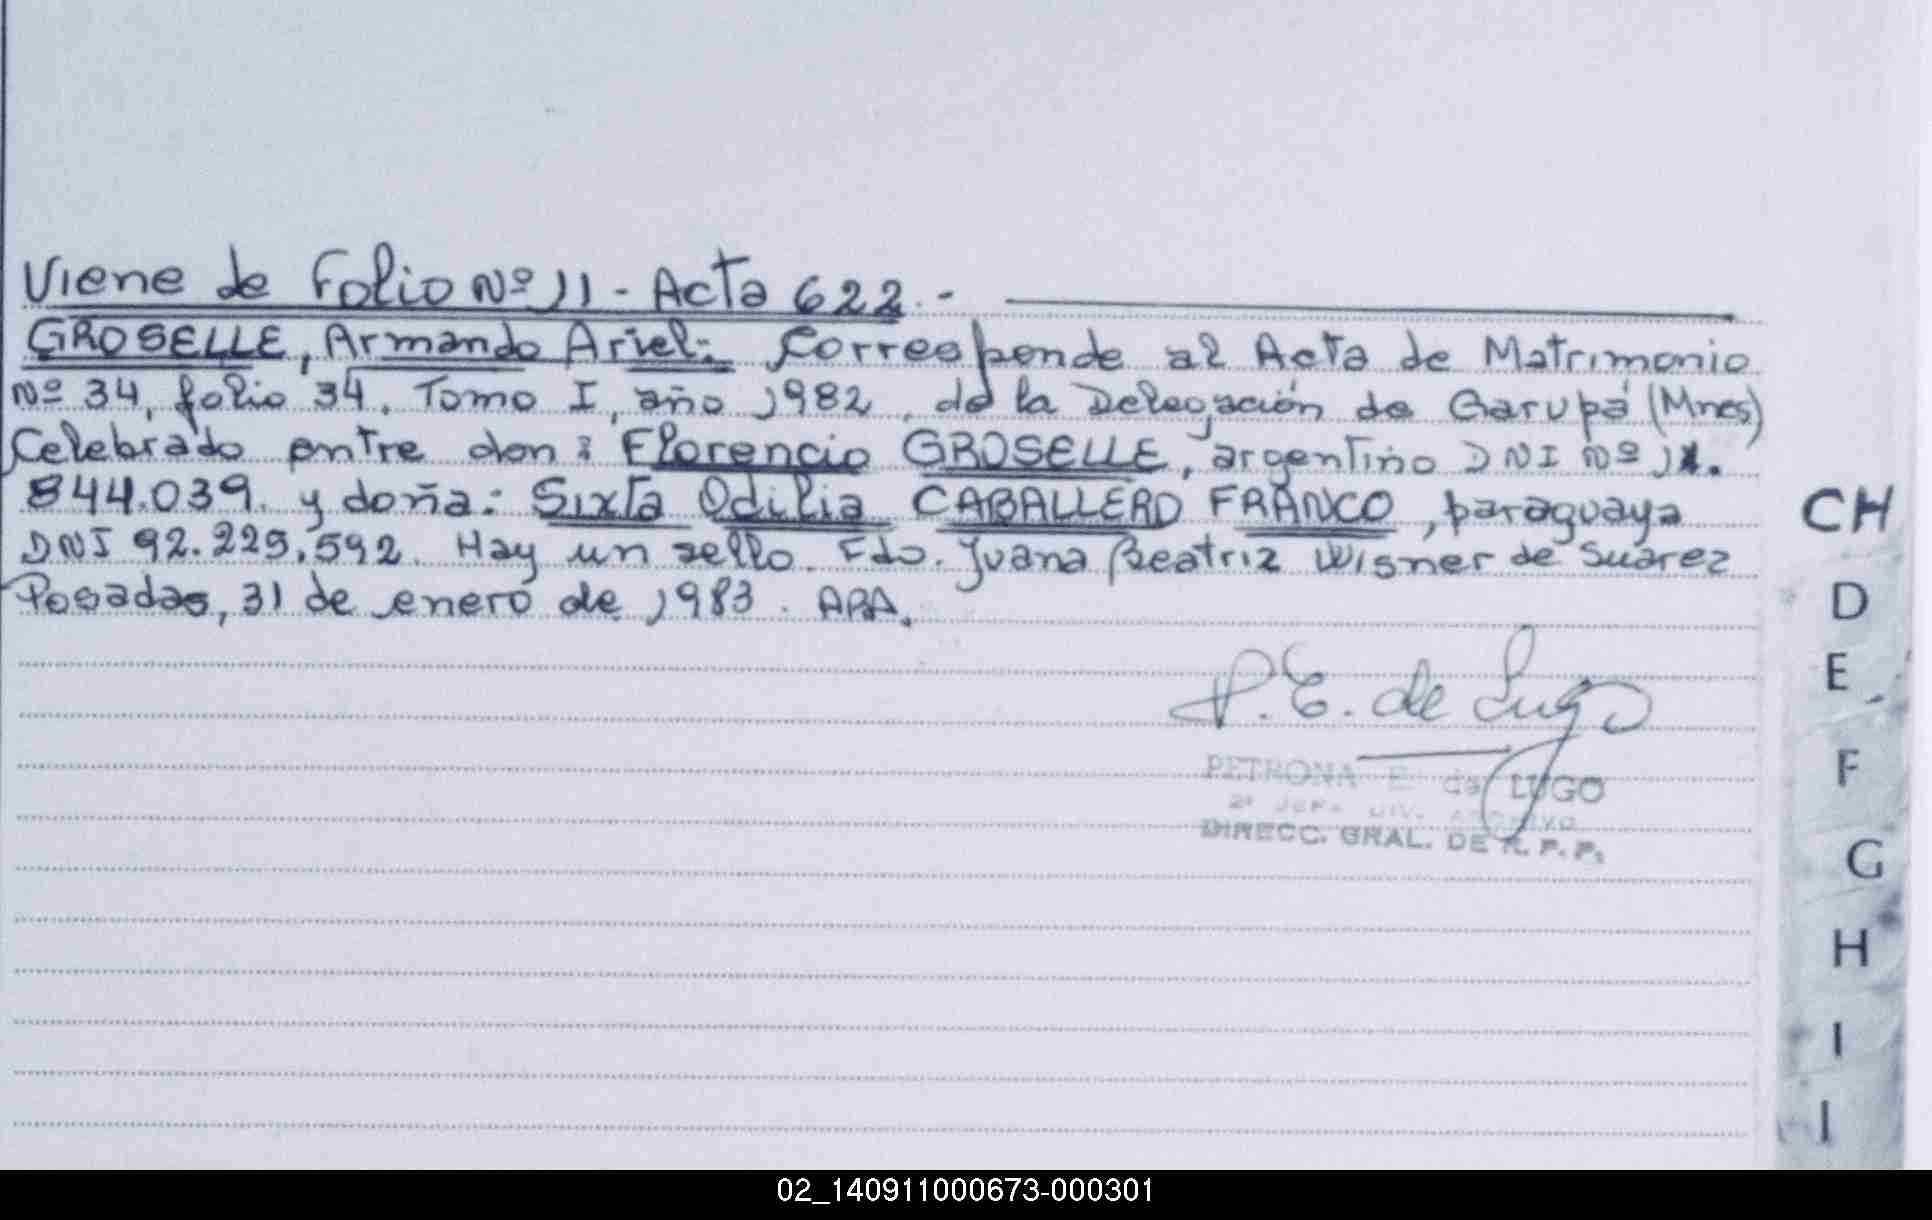 Viene de Folio Nº 11 - Acta 622.-
GROSELLE, Armando Ariel: Corresponde al Acta de Matrimonio
Nº 34, folio 34. Tomo I, año 1982, de la Delegación de Garupá (Mnes)
Celebrado entre don: Florencio GROSELLE, argentino DNI Nº
844.039. y doña: Sixta Odilia CABALLERO FRANCO, paraguaya
DNI 92.229.592. Hay un sello. Fdo. Juana Beatriz Wisner de Suarez
Posadas, 31 de enero de 1983. ARA.
P. E. de Lugo
PETRONA E. de LUGO
2º JEFA DIV. ARCHIVO
DIRECC. GRAL. DE R. P. P.
CH
D
E
F
G
H
I
J
02_140911000673-000301